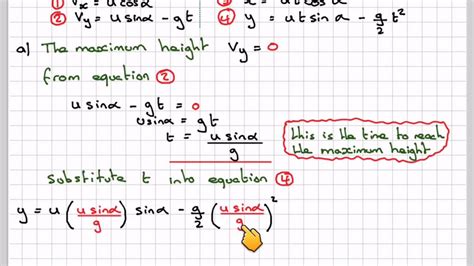 ① Vx = u cosα ③ x = ut cosα
② Vy = u sinα - gt ④ y = ut sinα - g/2 t²
a) The maximum height Vy = 0
from equation ②
u sinα - gt = 0
u sinα = gt
t = u sinα / g
this is the time to reach
the maximum height
substitute t into equation ④
y = u (u sinα / g) sinα - g/2 (u sinα / g)²